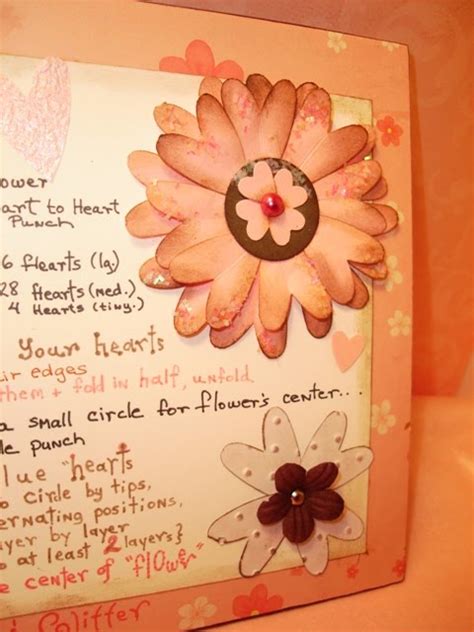 ower
art to Heart
Punch
6 Hearts (lg)
28 Hearts (med.)
4 Hearts (tiny.)
Your hearts
ir edges
them + fold in half, unfold
a small circle for flower's center...
le punch
lue "hearts
o circle by tips,
ernating positions,
yer by layer
o at least 2 layers}
e center of "flower"
Glitter